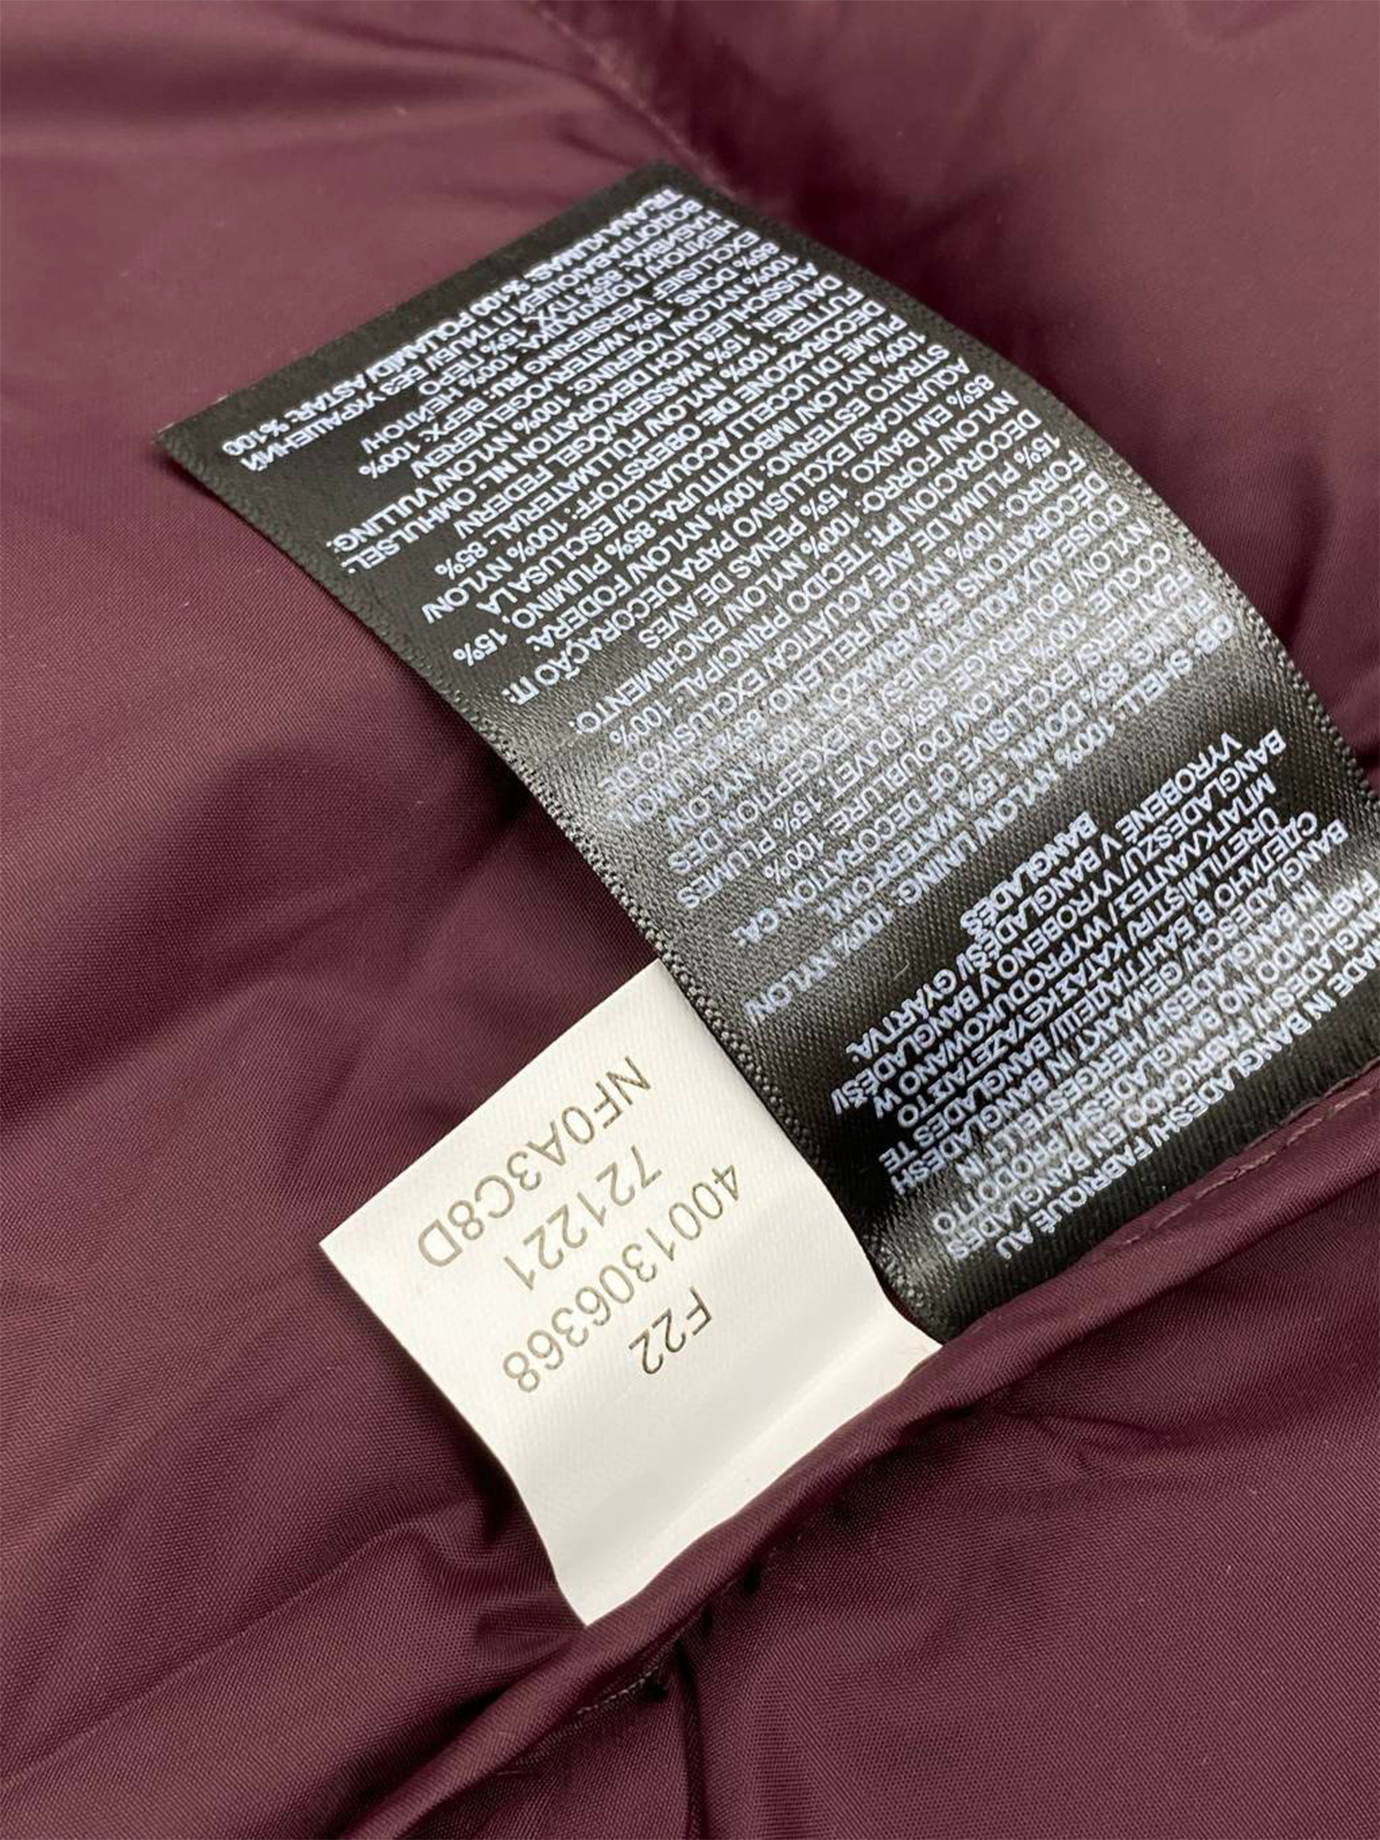 F22
4001306368
721221
NF0A3C8D
MADE IN BANGLADESH/ FABRIQUÉ AU
BANGLADESH/ FABRICADO EN BANGLADES
FABRICADO NO BANGLADESH/ PRODOTTO
IN BANGLADESH/ HERGESTELLT IN
BANGLADESCH/ GEMAAKT IN BANGLADESH/
СДЕЛАНО В БАНГЛАДЕШ/ BANGLADEŞ'TE
ÜRETİLMİŞTİR/ ΚΑΤΑΣΚΕΥΑΖΕΤΑΙ ΣΤΟ
ΜΠΑΓΚΛΑΝΤΕΣ/ WYPRODUKOWANO W
BANGLADESZU/ VYROBENO V BANGLADÉŠI/
VYROBENÉ V BANGLADÉŠI/ GYÁRTVA:
BANGLADÉS
GB: SHELL: 100% NYLON/ LINING: 100% NYLON
FILLING: 85% DOWN, 15% WATERFOWL
FEATHERS/ EXCLUSIVE OF DECORATION CA:
COQUE: 100% NYLON/ DOUBLURE: 100%
NYLON/ BOURRAGE: 85% DUVET, 15% PLUMES
D'OISEAUX AQUATIQUES/ À L'EXCEPTION DES
DÉCORATIONS ES: ARMAZÓN: 100% NYLON
FORRO: 100% NYLON/ RELLENO: 85% PLUMÓN,
15% PLUMA DE AVE ACUÁTICA/ EXCLUSIVO DE
DECORACIÓN PT: TECIDO PRINCIPAL: 100%
NYLON/ FORRO: 100% NYLON/ ENCHIMENTO:
85% EM BAIXO, 15% PENAS DE AVES
AQUÁTICAS/ EXCLUSIVO PARA DECORAÇÃO IT:
STRATO ESTERNO: 100% NYLON/ FODERA:
100% NYLON/ IMBOTTITURA: 85% PIUMINO, 15%
PIUME DI UCCELLI ACQUATICI/ ESCLUSA LA
DECORAZIONE DE: OBERSTOFF: 100% NYLON
FUTTER: 100% NYLON/ FÜLLMATERIAL: 85%
DAUNEN, 15% WASSERVÖGEL FEDERN
AUSSCHLIEßLICH DEKORATION NL: OMHULSEL:
100% NYLON/ VOERING: 100% NYLON/ VULLING:
85% DONS, 15% WATERVOGELVEREN
EXCLUSIEF VERSIERING RU: ВЕРХ: 100%
НЕЙЛОН/ ПОДКЛАДКА: 100% НЕЙЛОН/
НАБИВКА: 85% ПУХ, 15% ПЕРО
ВОДОПЛАВАЮЩЕЙ ПТИЦЫ/ БЕЗ УКРАШЕНИЙ